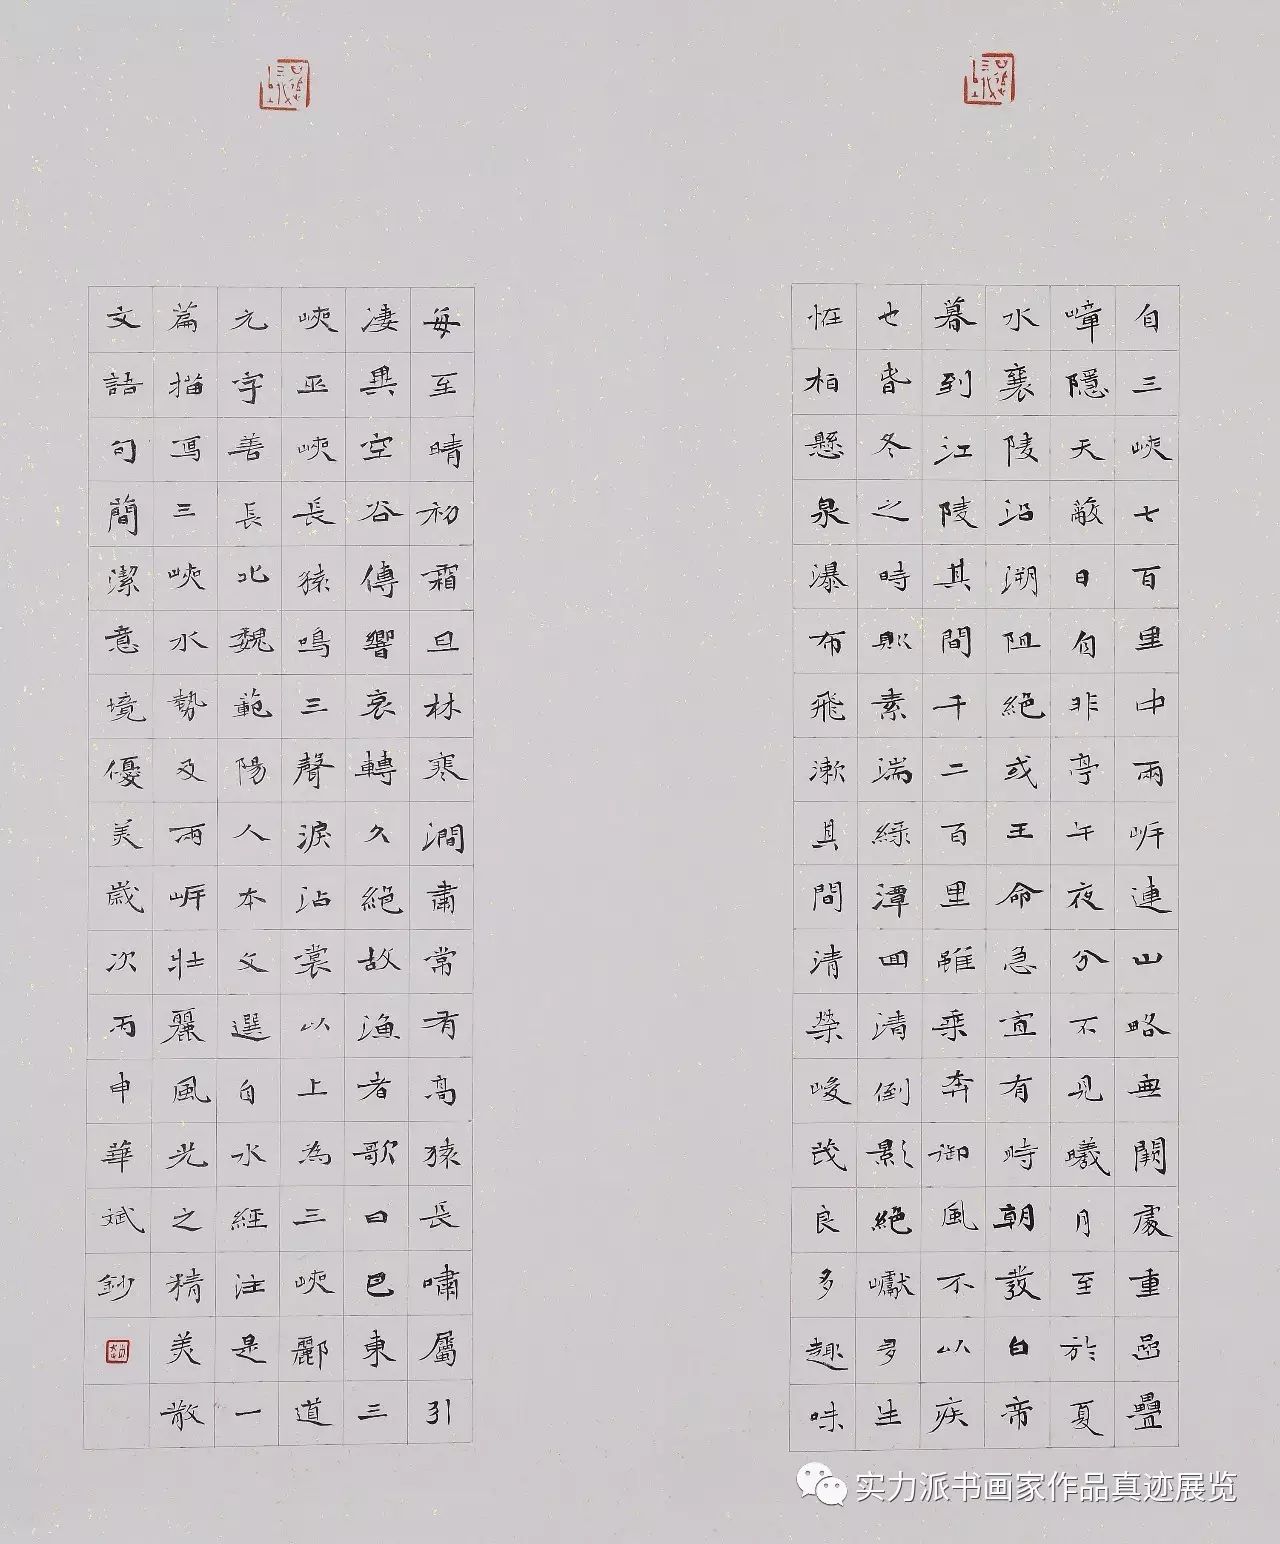 自三峽七百里中兩岸連山略無闕處重嵒疊
嶂隱天蔽日自非亭午夜分不見曦月至於夏
水襄陵沿溯阻絕或王命急宣有時朝發白帝
暮到江陵其間千二百里雖乘奔御風不以疾
也春冬之時則素湍綠潭回清倒影絕巘多生
怪柏懸泉瀑布飛漱其間清榮峻茂良多趣味
每至晴初霜旦林寒澗肅常有高猿長嘯屬引
淒異空谷傳響哀轉久絕故漁者歌曰巴東三
峽巫峽長猿鳴三聲淚沾裳以上為三峽酈道
元字善長北魏範陽人本文選自水經注是一
篇描寫三峽水勢及兩岸壯麗風光之精美散
文語句簡潔意境優美歲次丙申華斌鈔
实力派书画家作品真迹展览